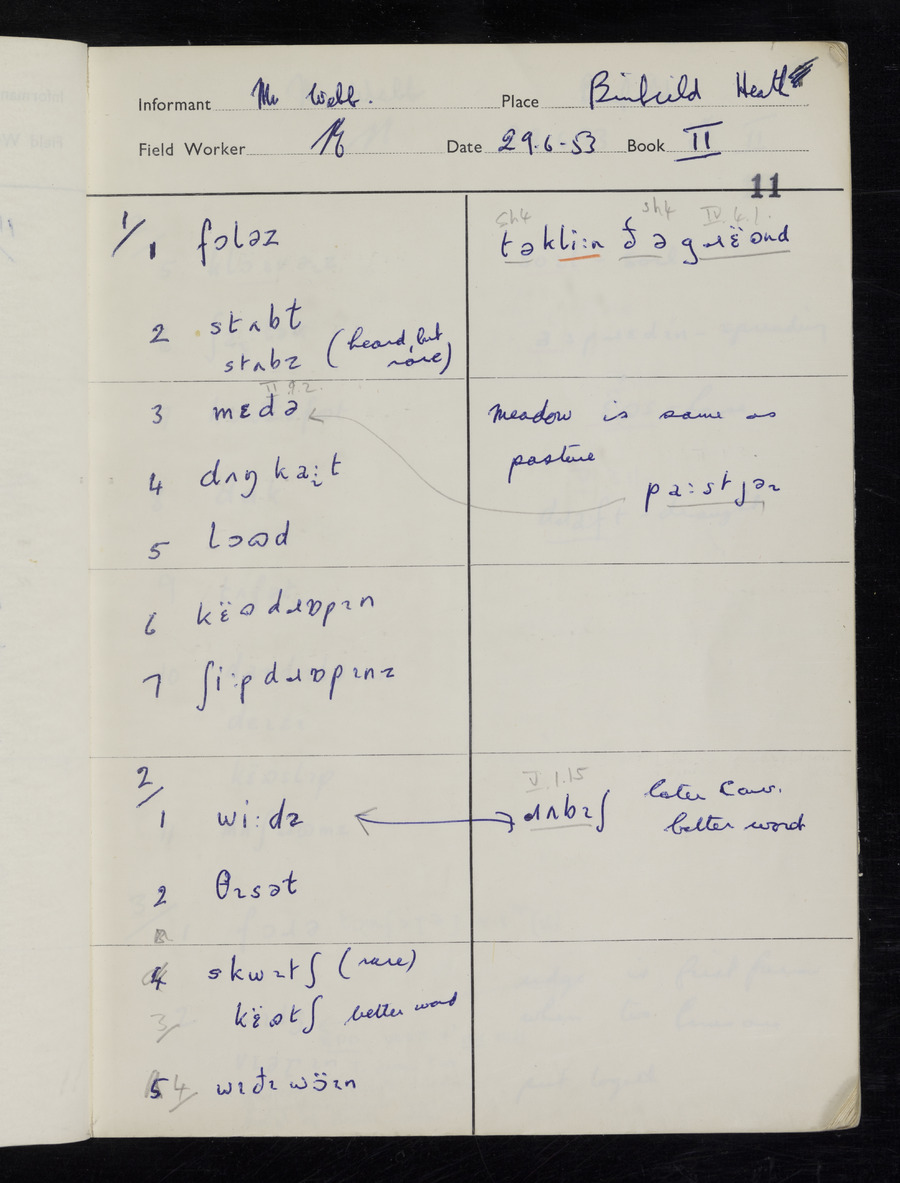 Informant Mr Webb. Place Binfield Heath
Field Worker Date 29.6.53 Book II
11
1/ 1 fɔləz
sh4 sh4 IV.4.1.
təkli:n ðə gɹɛ̈ənd
2 stʌbt
stʌbz (heard, but
rare)
II 9.2.
3 mɛdə
meadow is same as
pasture
pa:stjəɹ
4 dʌŋ ka:t
5 lɔʊd
6 kɛ̈ʊ dɹɒpɪn
7 ʃi:p dɹɒpɪnz
2/
1 wi:dz
V.1.15
ɹʌbɪʃ later conv.
better word
2 θɪsət
4 skwɪtʃ (rare)
3/ kɛ̈ʊtʃ better word
5 4/ wɪðɪwɔ̈ɪn